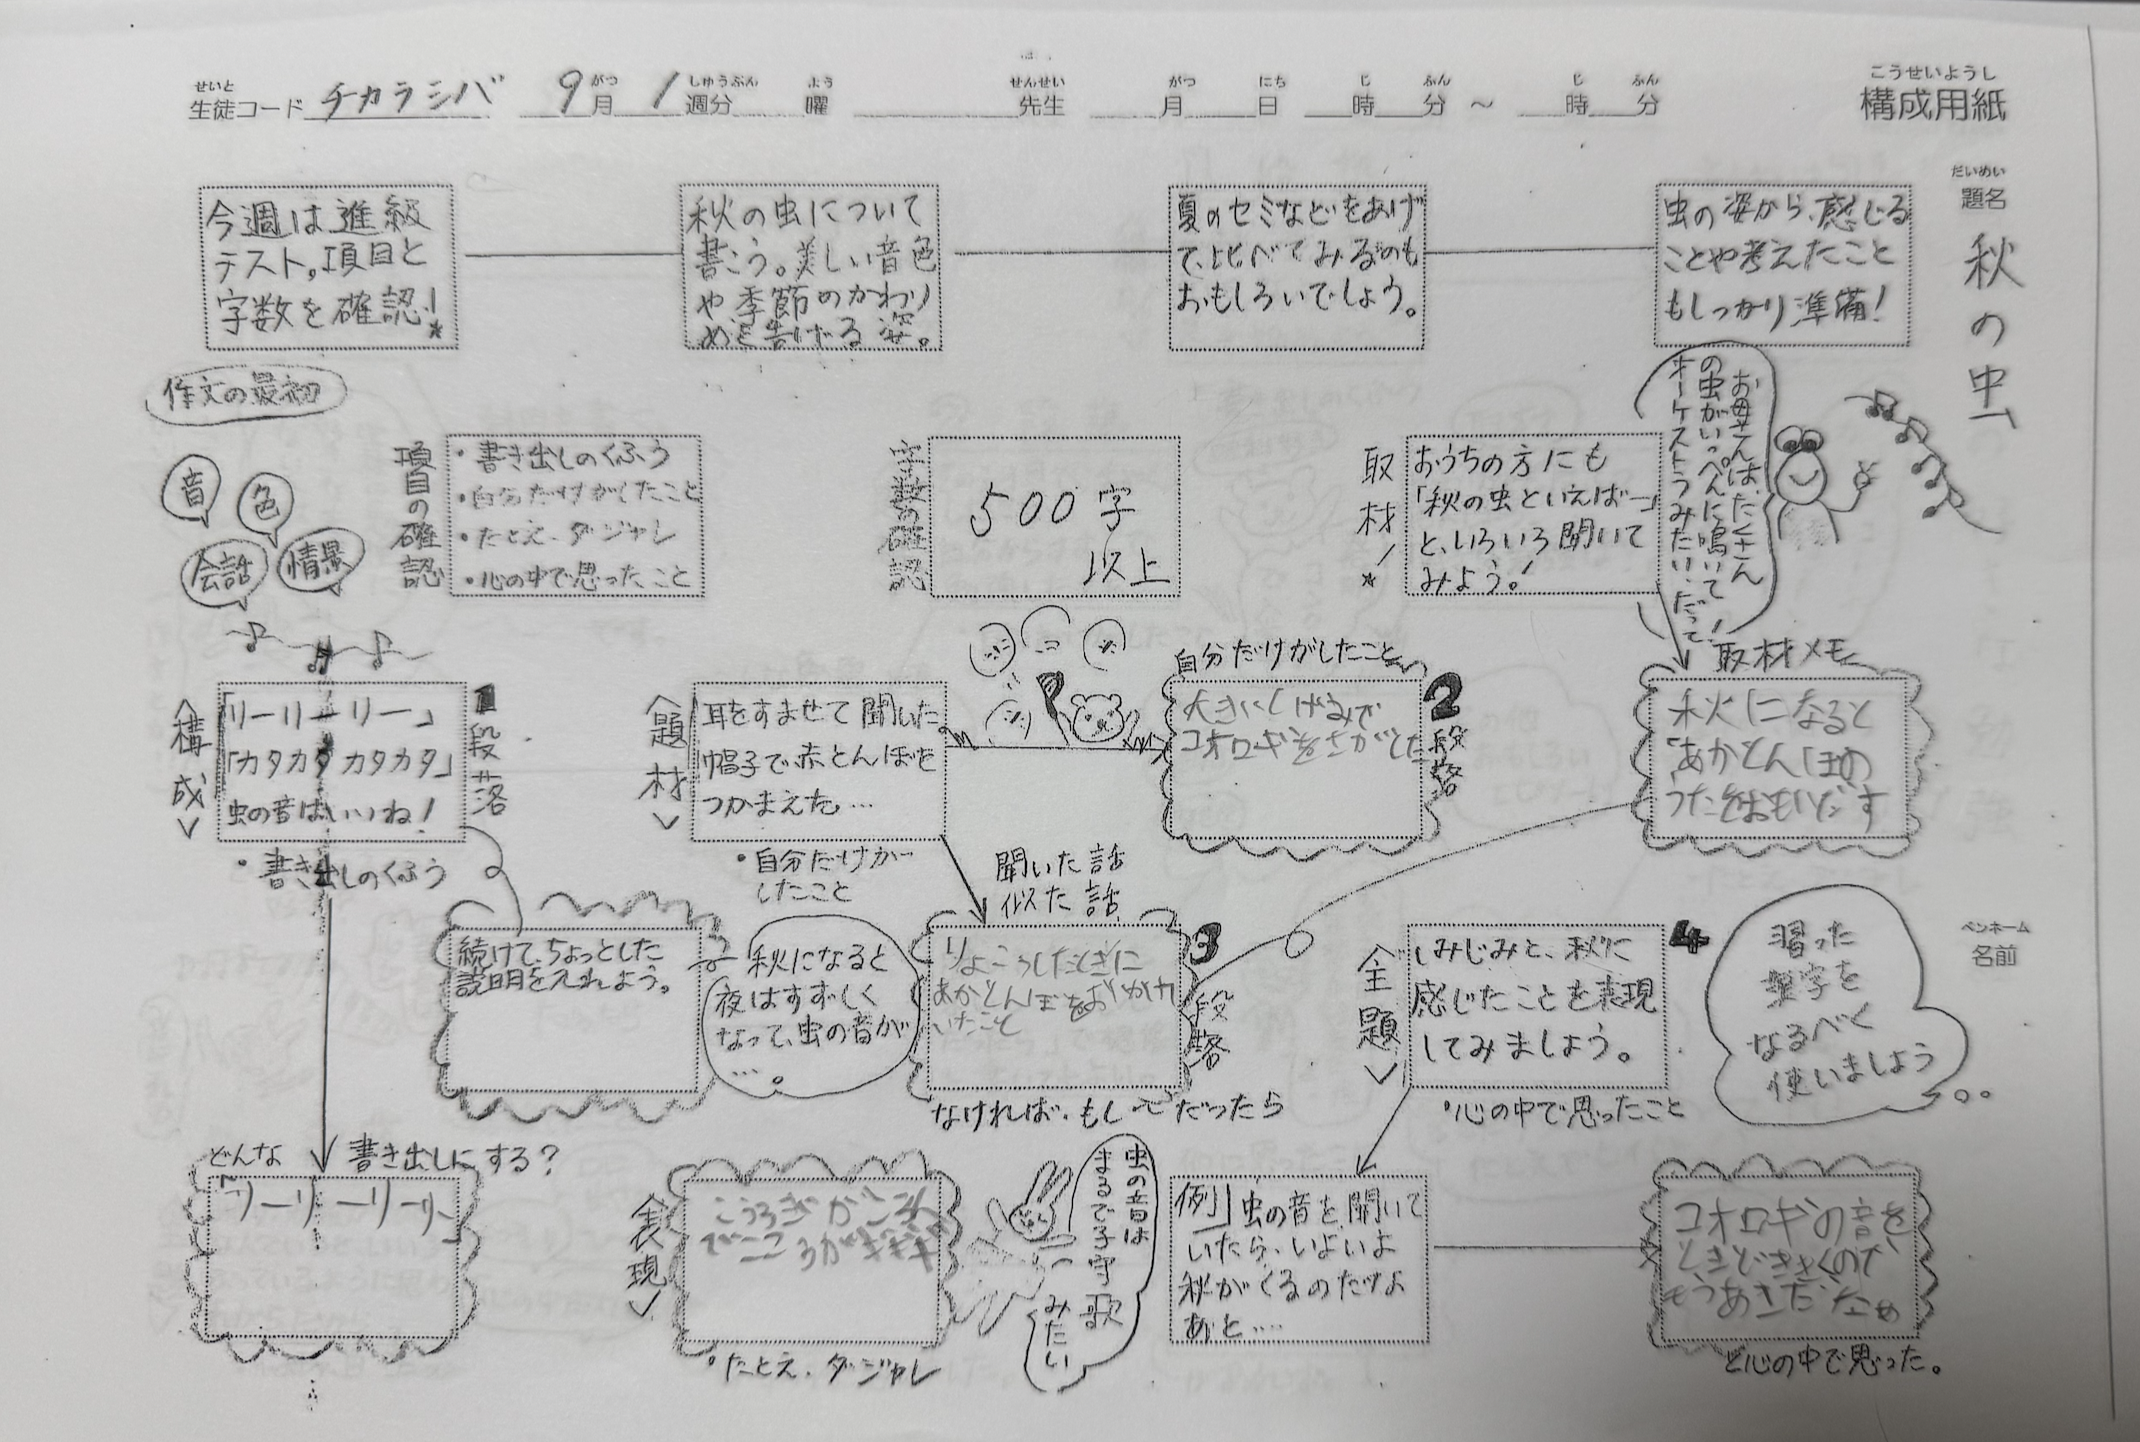 構成用紙
こうせいようし
生徒コード チカラシバ 9月 1週分 曜 先生 月 日 時 分 ～ 時 分
せいと がつ しゅうぶん よう せんせい がつ にち じ ふん じ ふん
だいめい
題名
秋の虫
ペンネーム
名前
虫の姿から、感じる
ことや考えたこと
もしっかり準備!
夏のセミなどをあげ
て、比べてみるのも
おもしろいでしょう。
秋の虫について
書こう。美しい音色
や季節のかわり
めを告げる姿。
今週は進級
テスト。項目と
字数を確認!
お母さんは、たくさん
の虫がいっぺんに鳴いて
オーケストラみたい、だって!
取材!
おうちの方にも
「秋の虫といえばー」
と、いろいろ聞いて
みよう!
字数の確認
500字
以上
項目の確認
・書き出しのくふう
・自分だけがしたこと
・たとえ、ダジャレ
・心の中で思ったこと
作文の最初
音
色
会話
情景
取材メモ
秋になると
「あかとんぼ」の
うたをおもいだす
<構成>
「リーリーリー」
「カタカタカタカタ」
虫の音はいいね!
1段落
・書き出しのくふう
続けて、ちょっとした
説明を入れよう。
秋になると
夜はすずしく
なって、虫の音が
…。
どんな書き出しにする?
「リーリーリーリー」
<題材>
耳をすませて聞いた
帽子で赤とんぼを
つかまえた…
・自分だけが
したこと
自分だけがしたこと
コオロギをさがした
2段落
聞いた話
似た話
りょこうしたときに
あかとんぼをおいかけ
いたこと
3段落
なければ、もし〜だったら
<表現>
・たとえ、ダジャレ
虫の音は
まるで子守歌
みたい
<主題>
しみじみと、秋に
感じたことを表現
してみましょう。
4
・心の中で思ったこと
例」虫の音を聞いて
いたら、いよいよ
秋がくるのだなぁ
あと…
コオロギの音を
ときどききくので
もうあきだなぁ
と心の中で思った。
習った
漢字を
なるべく
使いましょう